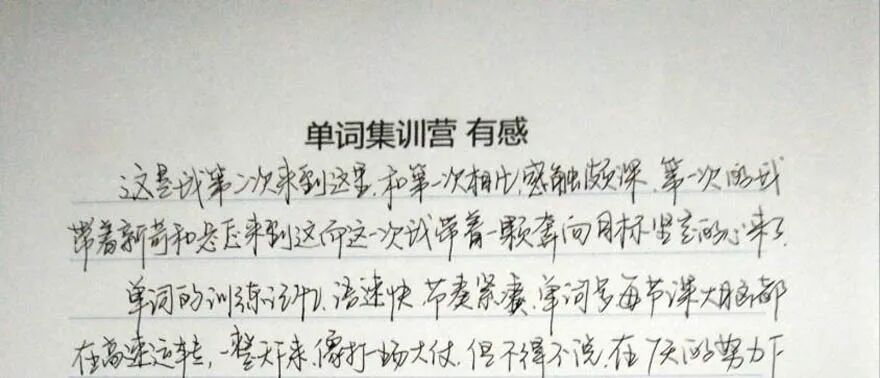 单词集训营 有感
这是我第二次来到这里,和第一次相比,感触颇深.第一次的我
带着新奇和忐忑来到这而这一次我带着一颗奔向目标坚定的心来了.
单词的训练计划,语速快,节奏紧凑,单词多每节课大脑都
在高速运转,一整天下来,像打一场大仗,但不得不说,在7天的努力下